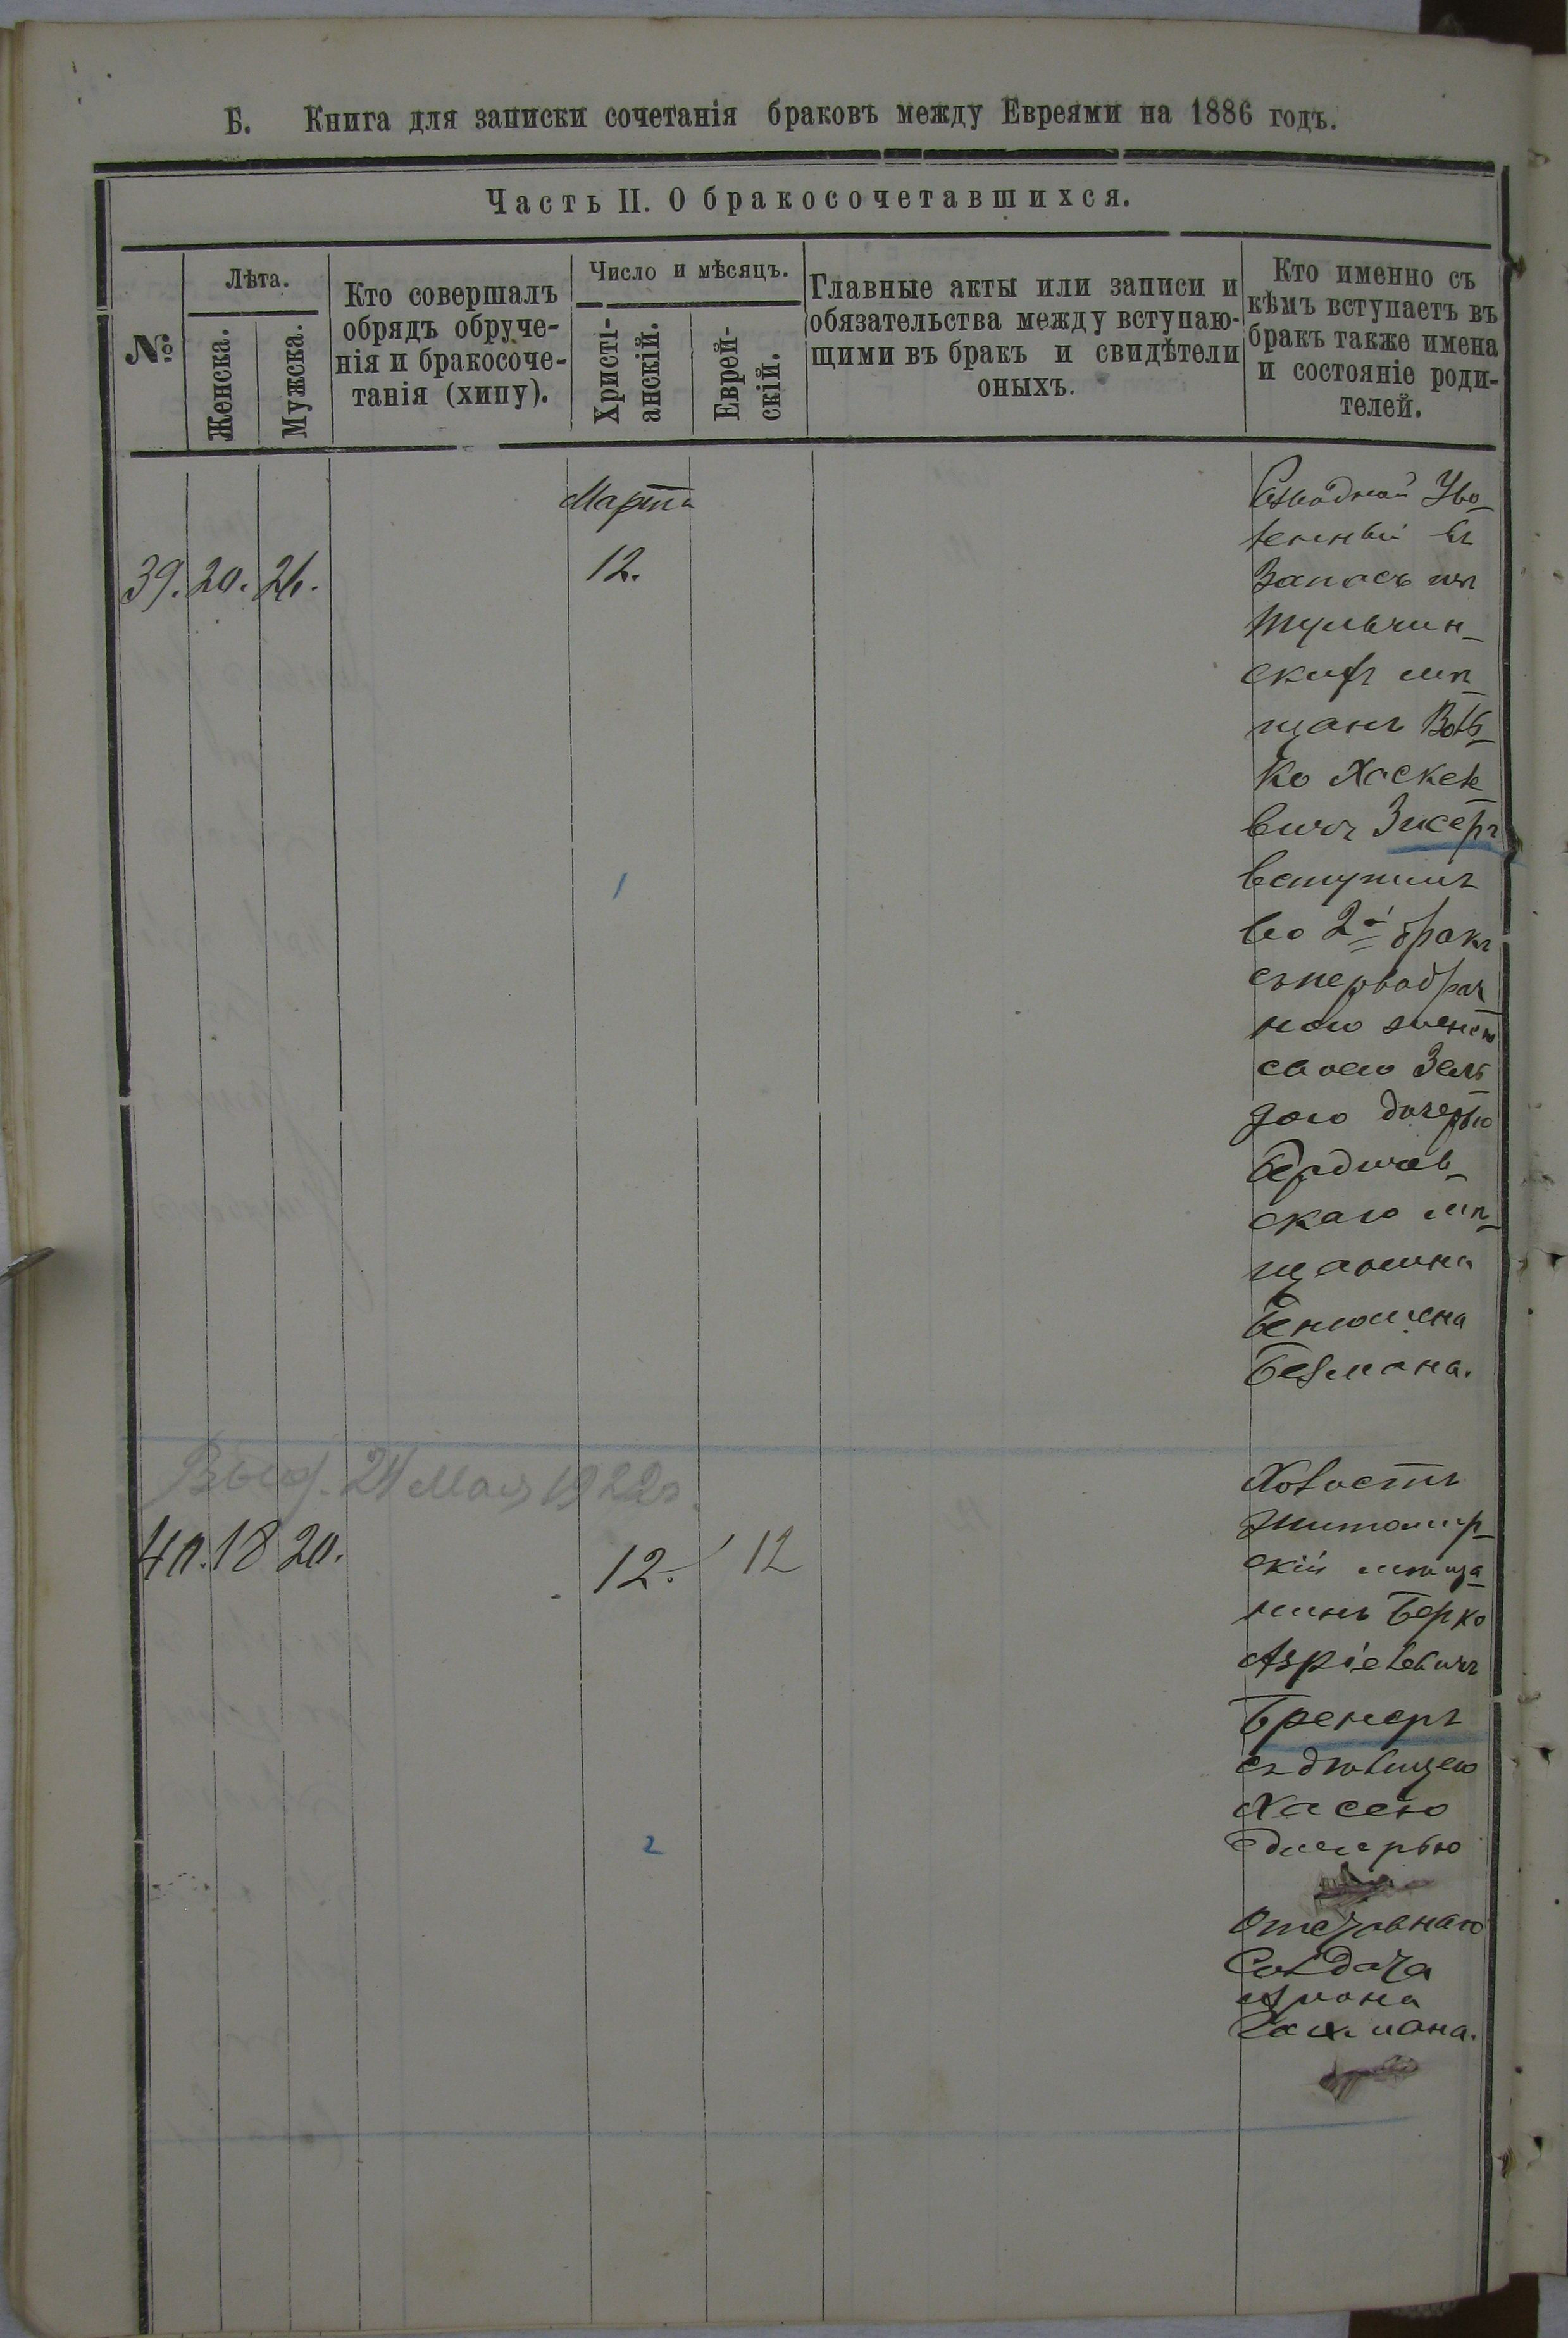 Б. Книга для записки сочетанія браковъ между Евреями на 1886 годъ.
Часть II. О бракосочетавшихся.
№
Лѣта.
Женска.
Мужска.
Кто совершалъ
обрядъ обруче-
нія и бракосоче-
танія (хипу).
Число и мѣсяцъ.
Христі-
анскій.
Еврей-
скій.
Главные акты или записи и
обязательства между вступаю-
щими въ бракъ и свидѣтели
оныхъ.
Кто именно съ
кѣмъ вступаетъ въ
бракъ также имена
и состояніе роди-
телей.
Марта
39. 20. 26.
12.
Уво-
ленный въ
Запасъ изъ
Тульчин-
скихъ мѣ-
щанъ Воль-
ко Хаскеле-
вичъ Зисеръ
вступилъ
во 2й бракъ
съ первобрач
ною женою
своею Зель-
дою дочерью
Бердичев-
скаго мѣ-
щанина
Беньюмена
Безмана.
1
Выд. 24 Мая 1922г.
40. 18 20.
12. 12
Холостъ
Житомир-
скій мѣща-
нинъ Берко
Азріелевичъ
Бренеръ
съ дѣвицею
Хасею
дочерью
Солдата
Арона
2